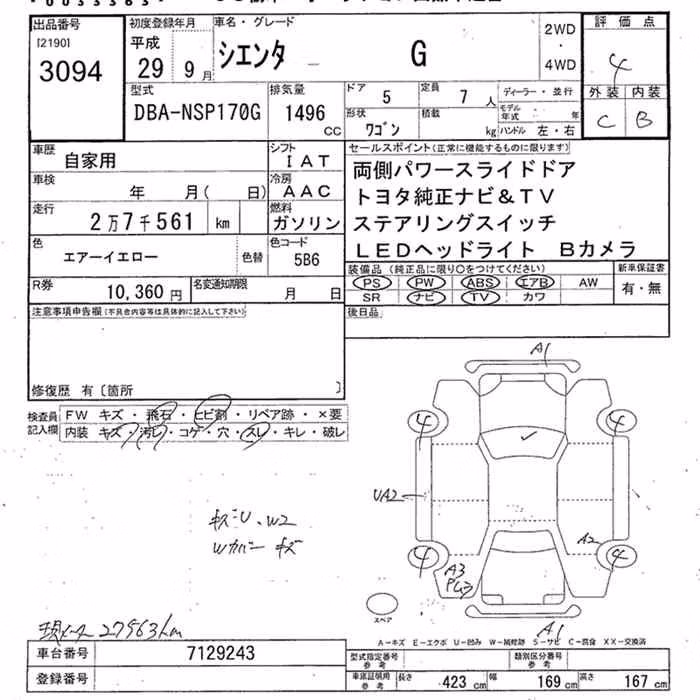 出品番号
[2190]
3094
初度登録年月
平成
29 9月
車名・グレード
シエンタ G
2WD
・
4WD
評価点
4
外装 内装
C B
型式
DBA-NSP170G
排気量
1496
cc
ドア 5
定員 7人
形状 ワゴン
積載 kg
ディーラー・並行
モデル年式 年
ハンドル 左・右
車歴 自家用
シフト
IAT
車検 年 月( 日)
冷房
AAC
走行 2万7千561 km
燃料
ガソリン
色 エアーイエロー 色替
色コード
5B6
R券 10,360円
名変通知期限 月 日
セールスポイント(正常に機能するものに限ります)
両側パワースライドドア
トヨタ純正ナビ&TV
ステアリングスイッチ
LEDヘッドライト Bカメラ
装備品(純正品に限り○をつけてください)
PS PW ABS エアB AW
SR ナビ TV カワ
新車保証書
有・無
後日品
注意事項申告欄(不具合内容等は具体的に記入して下さい)
修復歴 有〔箇所 〕
検査員記入欄
FW キズ・飛石・ヒビ割・リペア跡・×要
内装 キズ・汚レ・コゲ・穴・スレ・キレ・破レ
A1
4 4
UA2
A2
4 4
A3
キズU、W2
Wカバー キズ
スペア
A1
現メーター 27963km
A-キズ E-エクボ U-凹み W-補修跡 S-サビ C-腐食 XX-交換済
車台番号 7129243
登録番号
型式指定番号
参考
類別区分番号
参考
車庫証明用
参考
長さ 423cm 幅 169cm 高さ 167cm